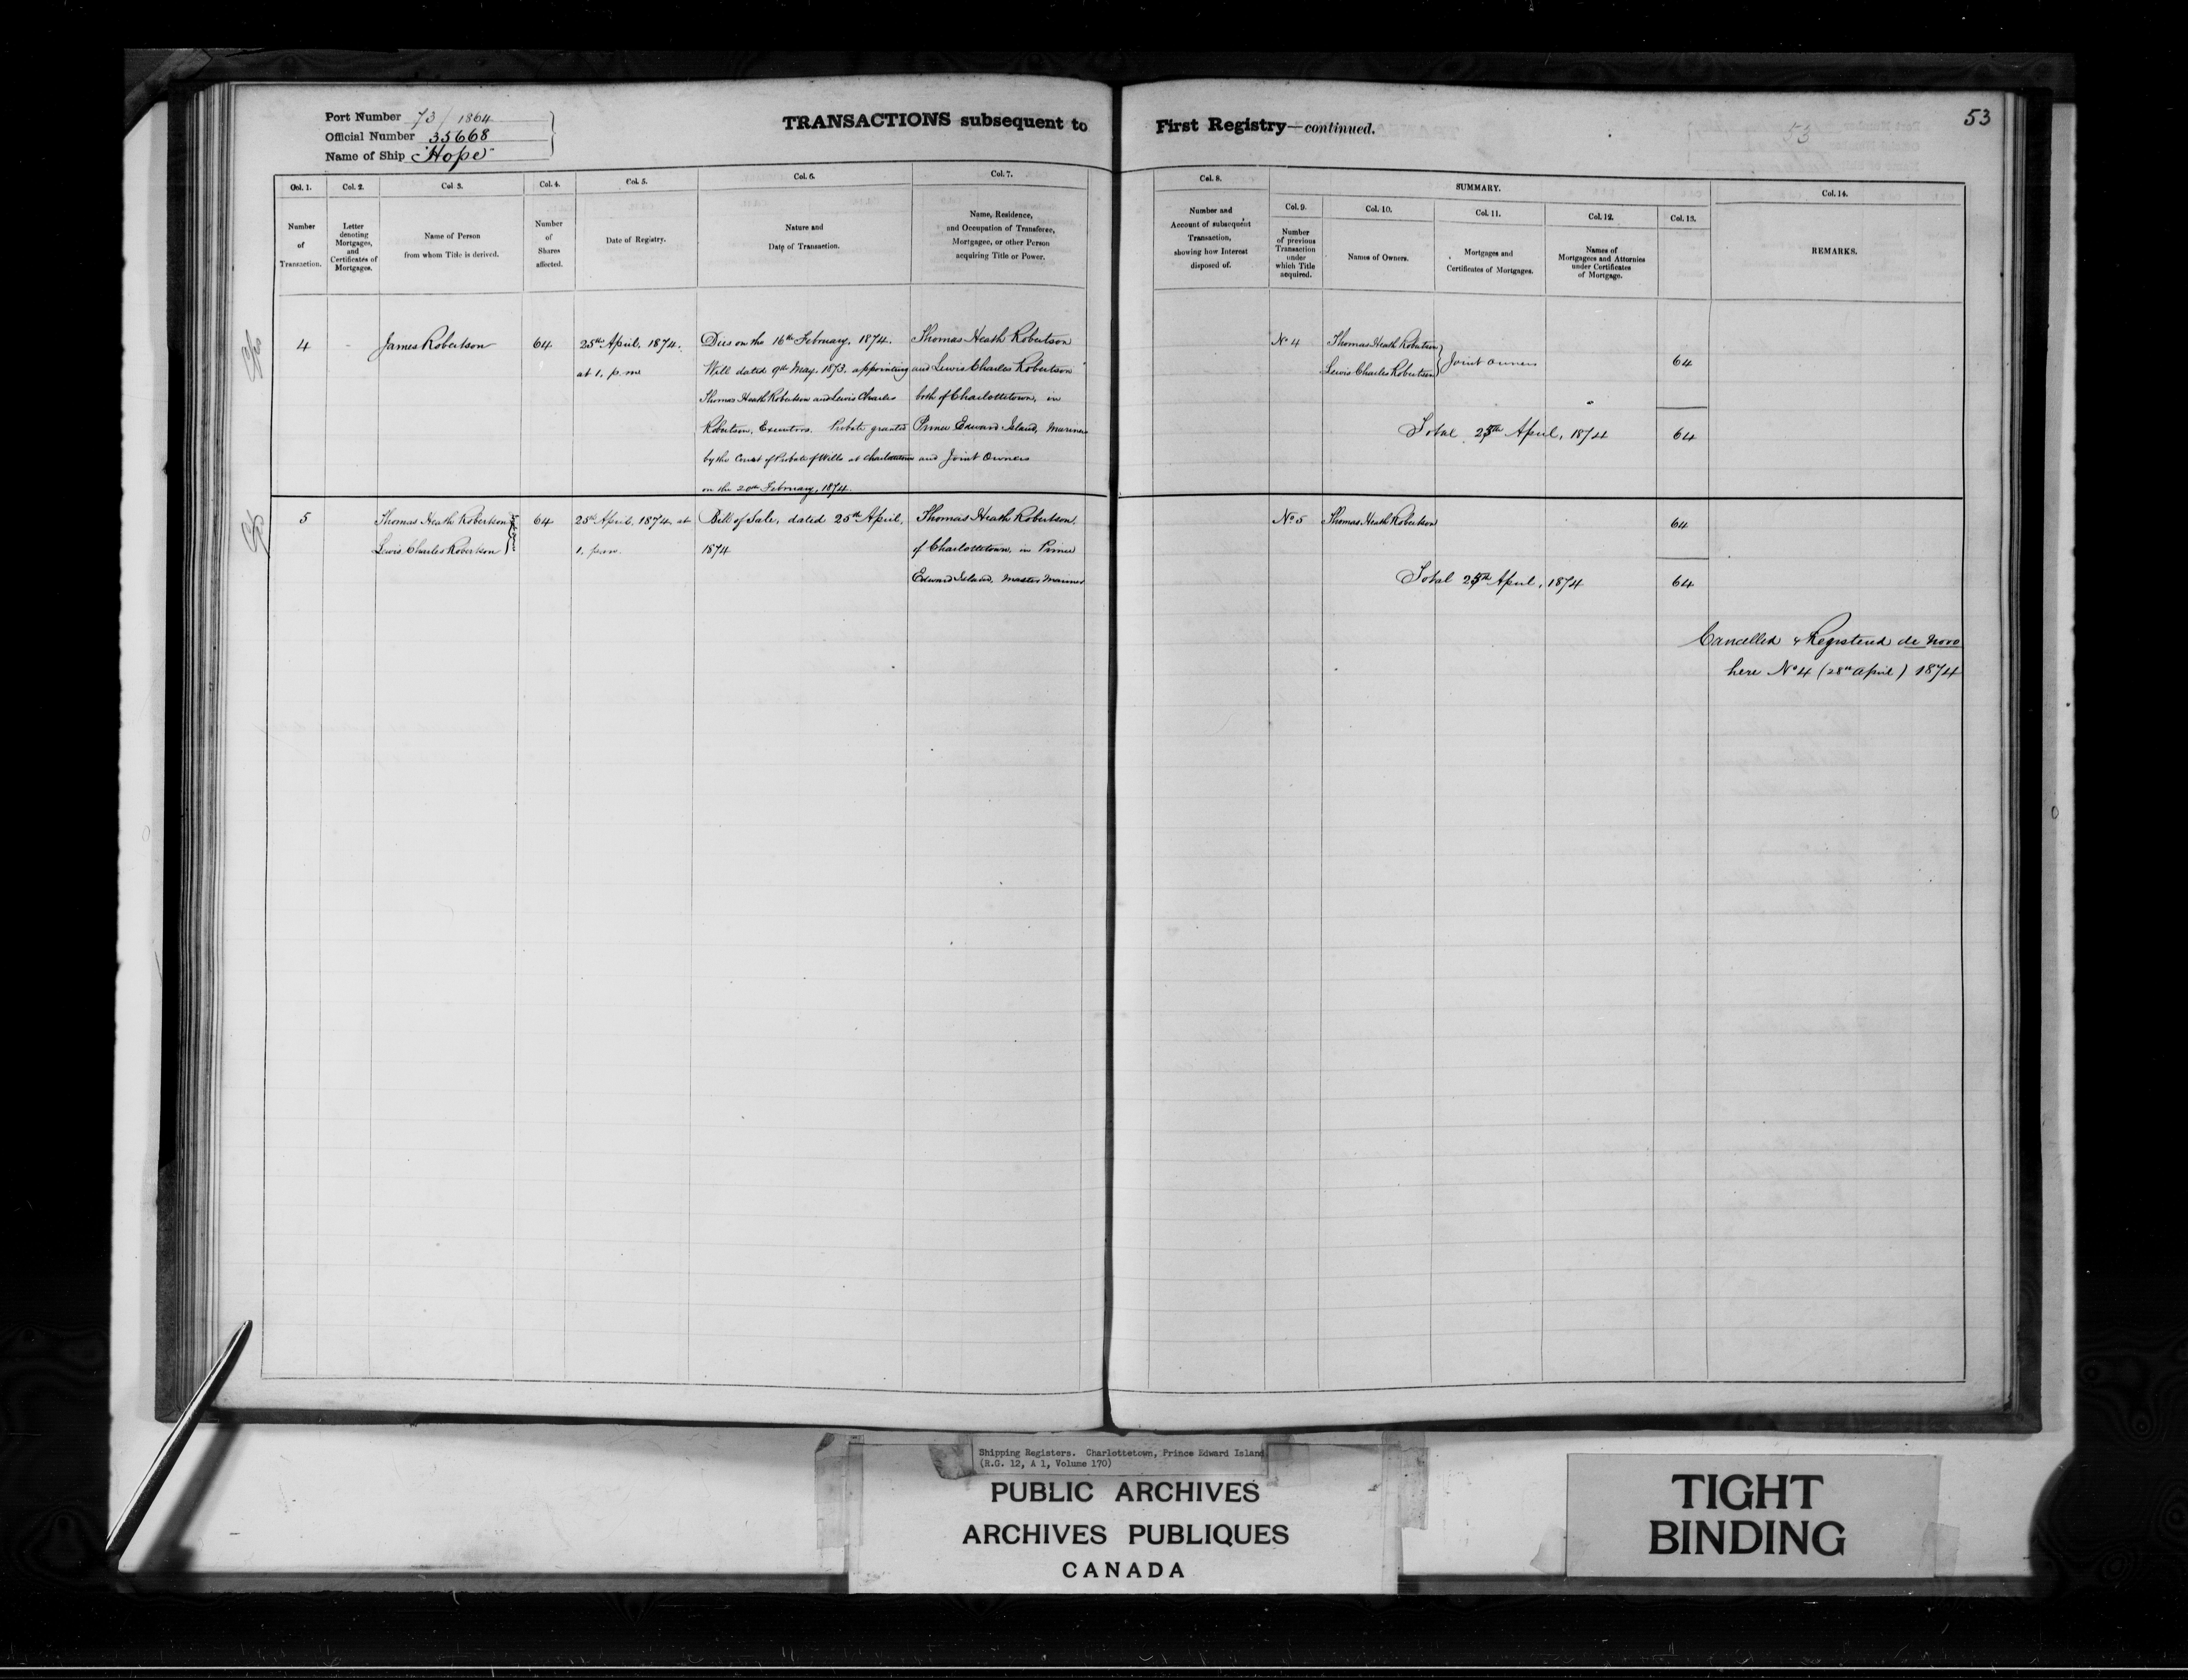 53
Port Number 73/1864
Official Number 35668
Name of Ship "Hope"
TRANSACTIONS subsequent to First Registry—continued.
Col. 1. Col. 2. Col 3. Col. 4. Col. 5. Col. 6. Col. 7. Col. 8. SUMMARY. Col. 14.
Number of Transaction.
Letter denoting Mortgages, and Certificates of Mortgages.
Name of Person from whom Title is derived.
Number of Shares affected.
Date of Registry.
Nature and Date of Transaction.
Name, Residence, and Occupation of Transferee, Mortgagee, or other Person acquiring Title or Power.
Number and Account of subsequent Transaction, showing how Interest disposed of.
Col. 9. Number of previous Transaction under which Title acquired.
Col. 10. Names of Owners.
Col. 11. Mortgages and Certificates of Mortgages.
Col. 12. Names of Mortgagees and Attornies under Certificates of Mortgage.
Col. 13.
REMARKS.
4 - James Robertson 64
25th April, 1874.
at 1. p.m
Dies on the 16th February, 1874.
Will dated 9th May, 1873. appointing
Thomas Heath Robertson and Lewis Charles
Robertson, Executors. Probate granted
by the Court of Probate of Wills at Charlottetown
on the 20th February, 1874.
Thomas Heath Robertson
and Lewis Charles Robertson
both of Charlottetown, in
Prince Edward Island, Mariners
and Joint Owners
No 4 Thomas Heath Robertson
Lewis Charles Robertson } Joint Owners 64
Total 25th April, 1874 64
5 Thomas Heath Robertson
Lewis Charles Robertson 64
25th April, 1874, at
1. p.m.
Bill of Sale, dated 25th April,
1874
Thomas Heath Robertson,
of Charlottetown, in Prince
Edward Island, Master Mariner
No 5 Thomas Heath Robertson 64
Total 25th April, 1874 64
Cancelled & Registered de Novo
here No 4 (28th April) 1874
Shipping Registers. Charlottetown, Prince Edward Island
(R.G. 12, A 1, Volume 170)
PUBLIC ARCHIVES
ARCHIVES PUBLIQUES
CANADA
TIGHT
BINDING